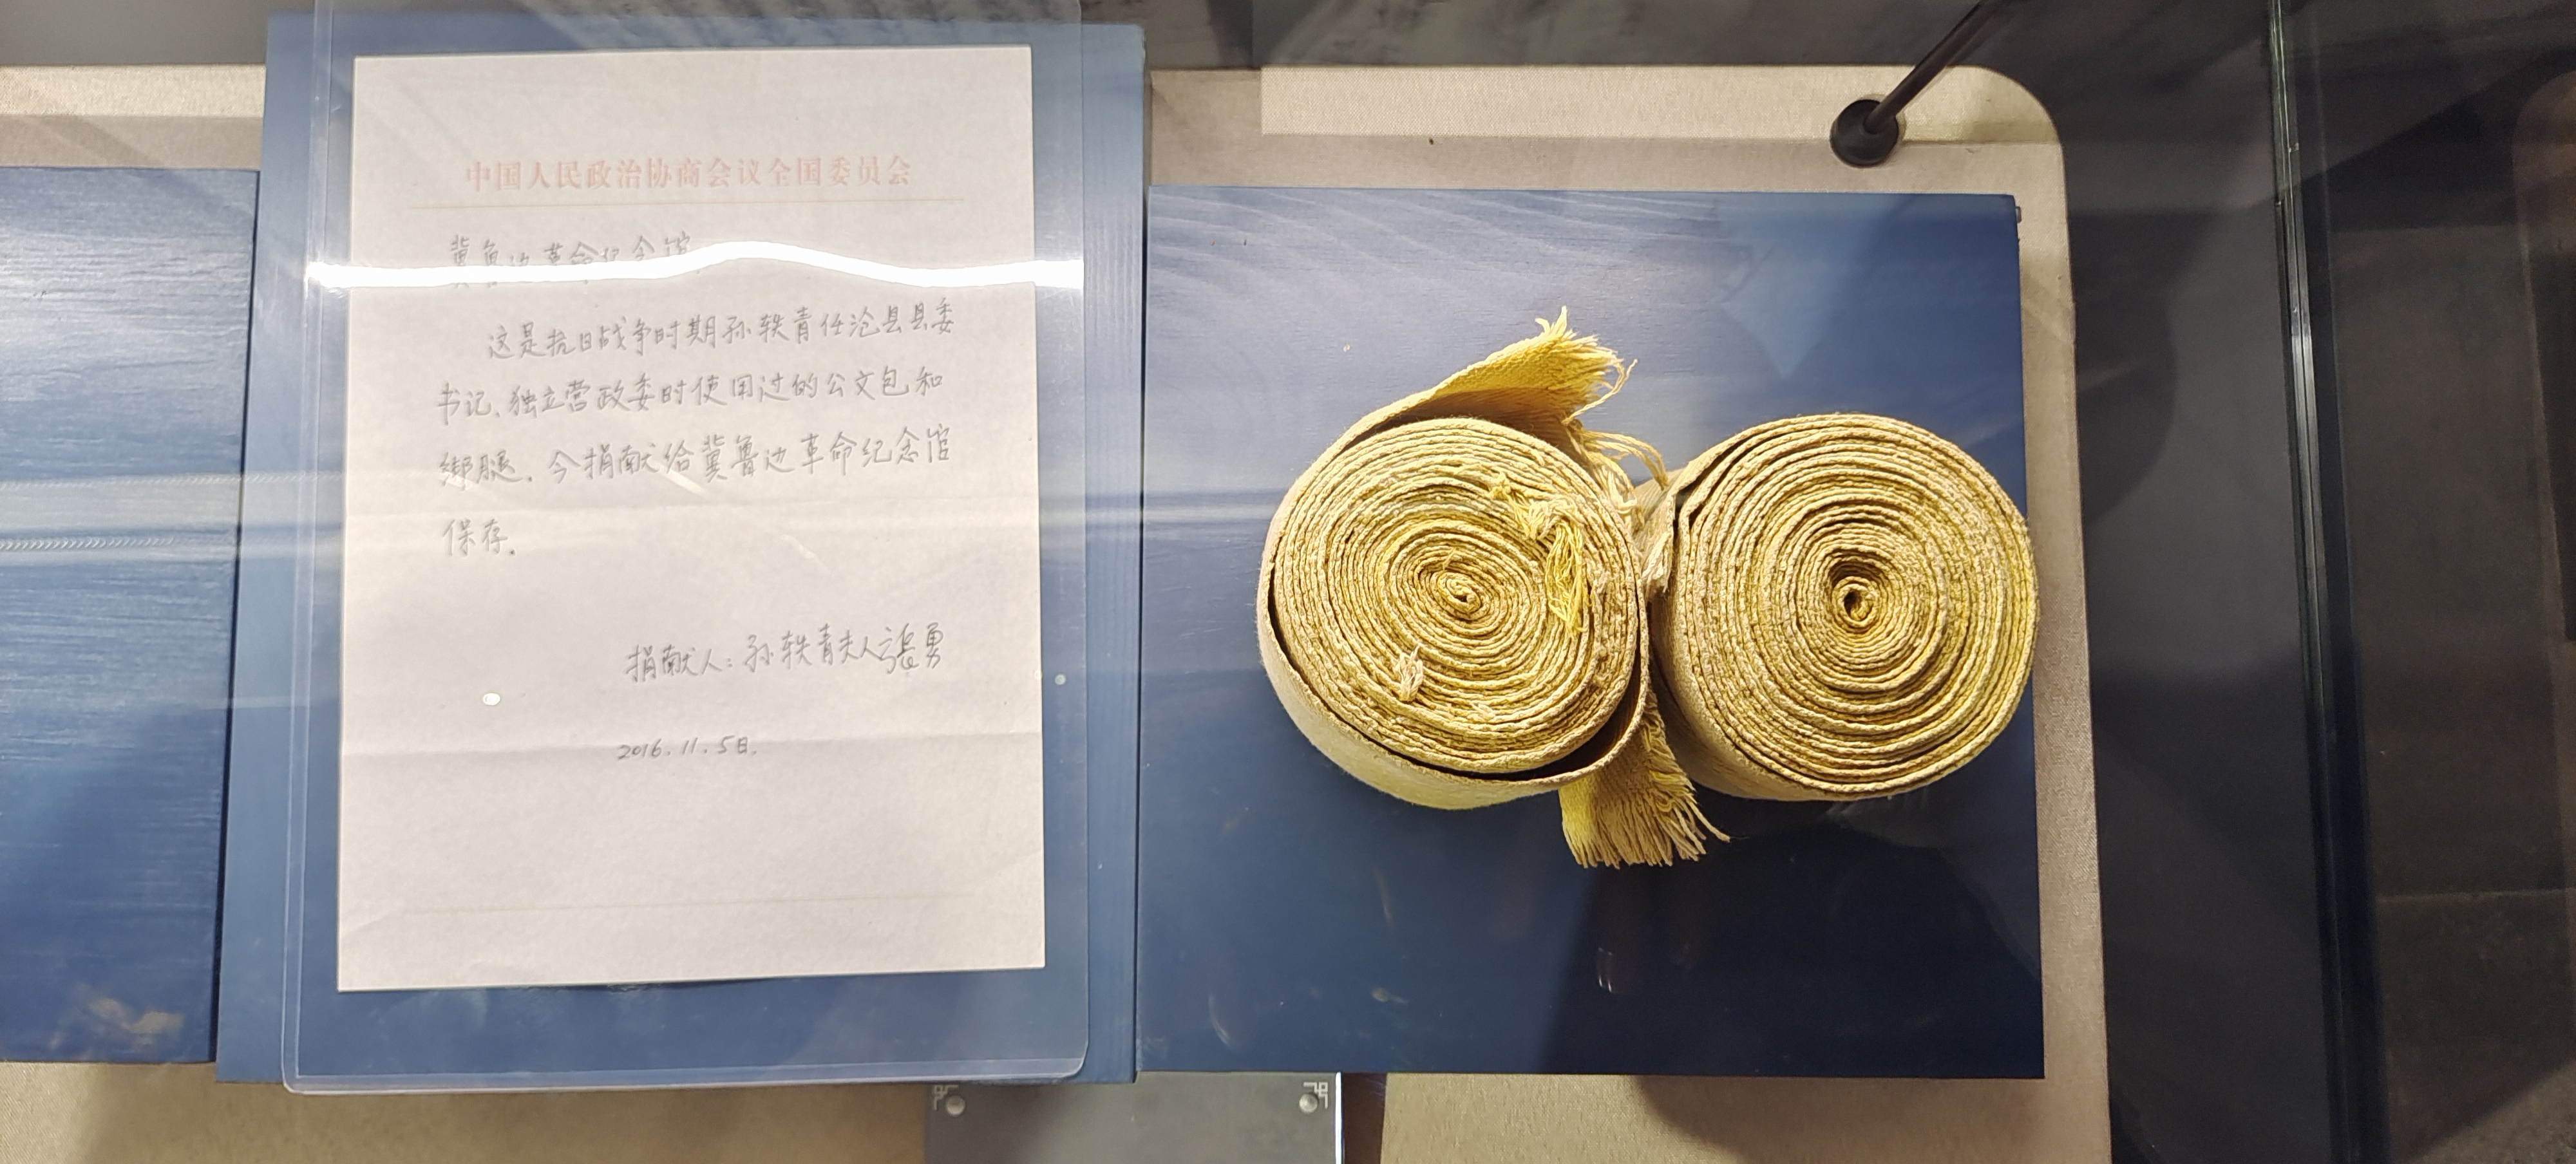 中国人民政治协商会议全国委员会
冀鲁边革命纪念馆
这是抗日战争时期孙轶青任沧县县委
书记、独立营政委时使用过的公文包和
绑腿。今捐献给冀鲁边革命纪念馆
保存。
捐献人：孙轶青夫人张勇
2016.11.5日.